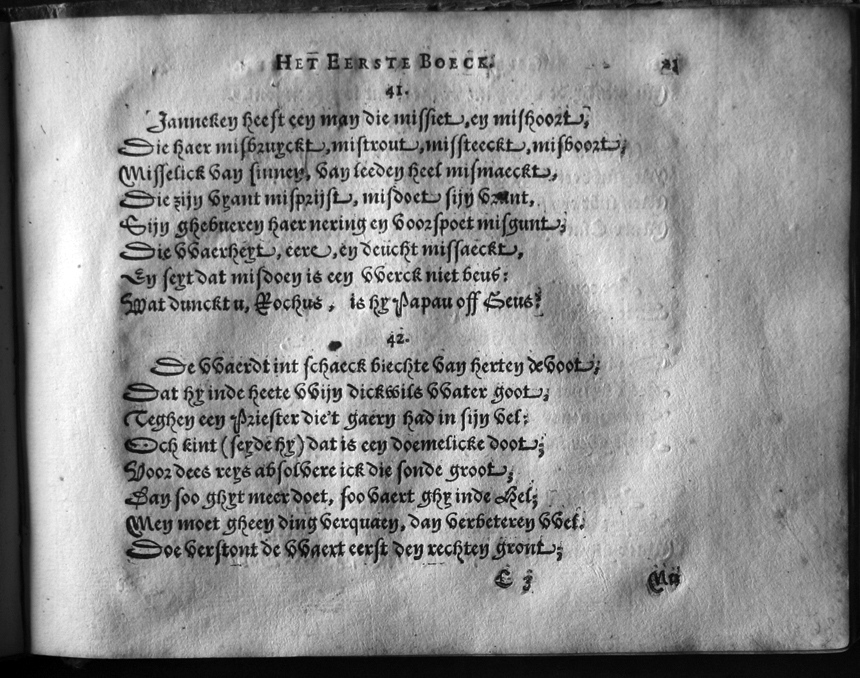 HET EERSTE BOECK. 21
41.
Janneken heeft een man die missiet, en mishoort,
Die haer misbruyckt, mistrout, missteeckt, misboort,
Misselick van sinnen, van leeden heel mismaeckt,
Die zijn vyant misprijst, misdoet sijn vrient,
Sijn ghebueren haer nering en voorspoet misgunt,
Die VVaerheyt, eere, en deucht missaeckt,
En seyt dat misdoen is een VVerck niet beus:
Wat dunckt u, Rochus, is hy Papau off Geus?
42.
De VVaerdt int schaeck biechte van herten devoot,
Dat hy inde heete VVijn dickwils VVater goot,
Teghen een Priester die't gaern had in sijn vel:
Och kint (seyde hy) dat is een doemelicke doot;
Voor dees reys absolvere ick die sonde groot,
Dan soo ghyt meer doet, soo vaert ghy inde Hel;
Men moet gheen ding verquaen, dan verbeteren VVel.
Doe verstont de VVaert eerst den rechten gront,
C 3